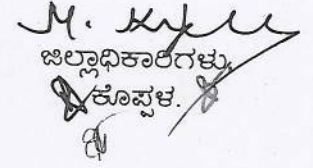 ಜಿಲ್ಲಾಧಿಕಾರಿಗಳು,
ಕೊಪ್ಪಳ.